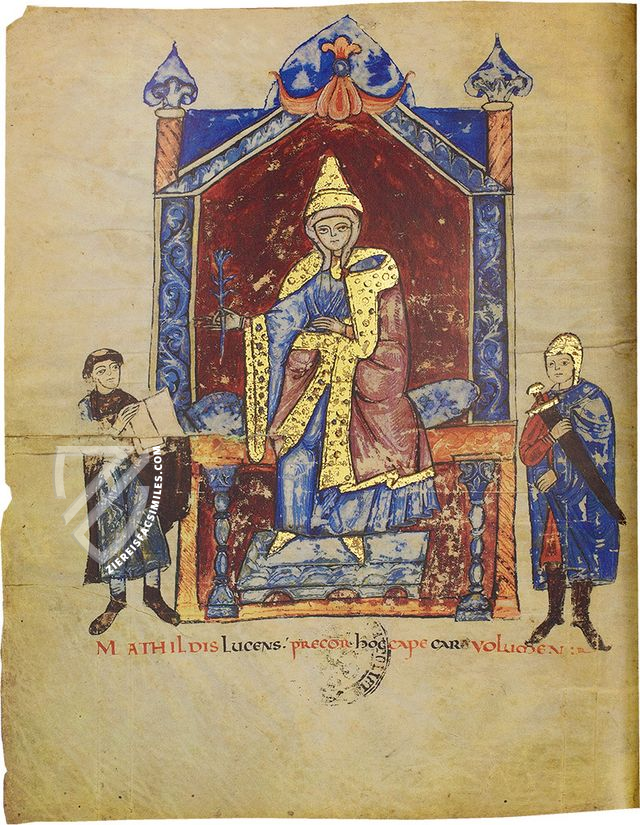 ZIEREISFACSIMILES.COM
MATHILDIS LUCENS. PRECOR hOC CAPE CARA VOLUMEN: